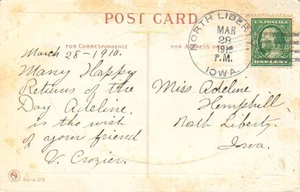 POST CARD
FOR CORRESPONDENCE
FOR ADDRESS ONLY
NORTH LIBERTY
MAR
28
1910
P.M.
IOWA.
March 28-1910.
Many Happy
Returns of the
Day Adeline.
is the wish
of your friend
V. Crozier.
Miss Adeline
Hemphill
North Liberty.
Iowa.
ONE CENT